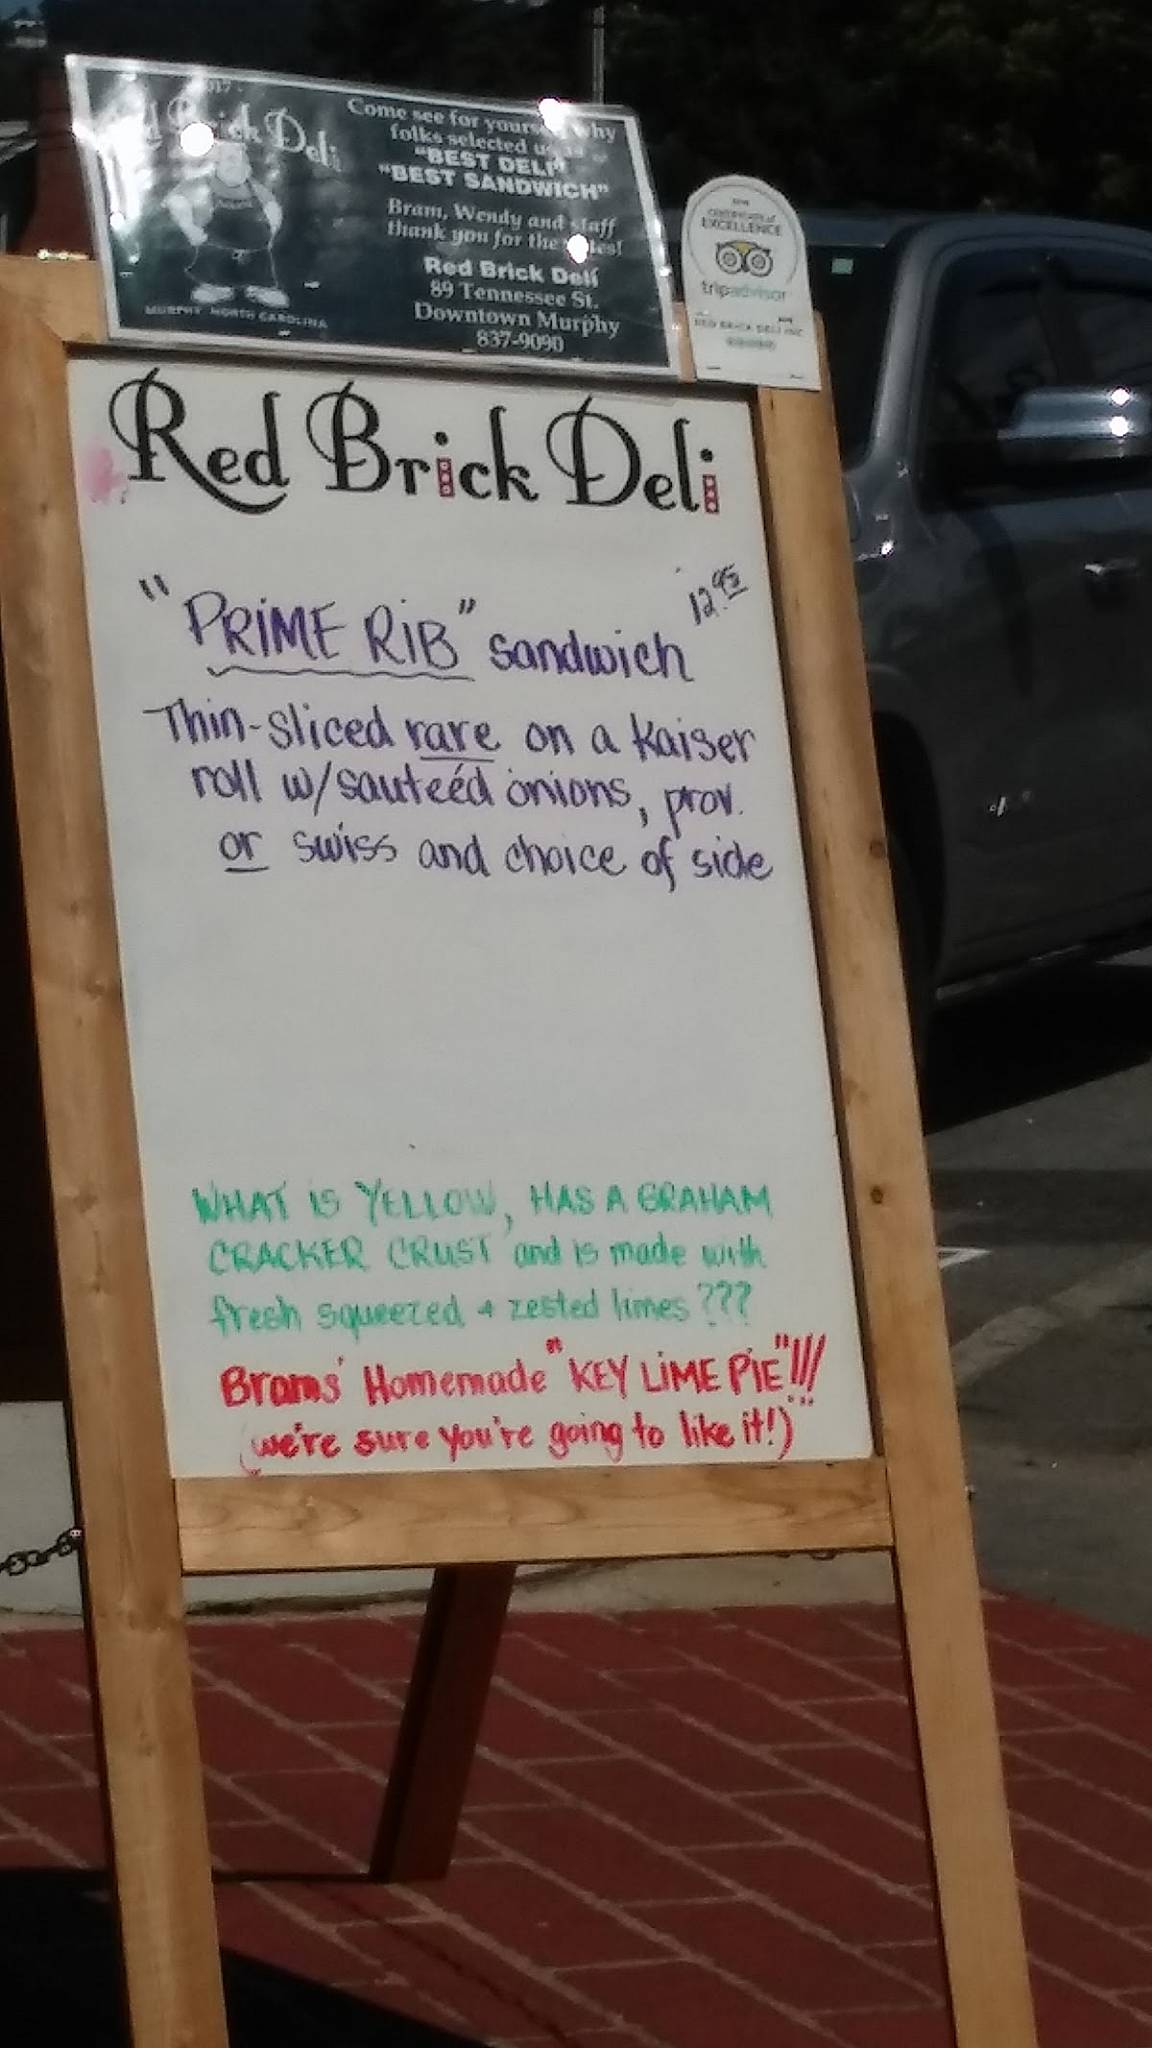 2017
Red Brick Deli
MURPHY NORTH CAROLINA
Come see for yourself why
folks selected us
"BEST DELI"
"BEST SANDWICH"
Bram, Wendy and staff
thank you for the votes!
Red Brick Deli
89 Tennessee St.
Downtown Murphy
837-9090
CERTIFICATE of
EXCELLENCE
tripadvisor
RED BRICK DELI INC
Red Brick Deli
"PRIME RIB" sandwich 12.95
Thin-sliced rare on a Kaiser
roll w/sauteéd onions, prov.
or swiss and choice of side
WHAT is YELLOW, HAS A GRAHAM
CRACKER CRUST and is made with
fresh squeezed + zested limes???
Brams' Homemade "KEY LiME PiE"!!!
(we're sure you're going to like it!)